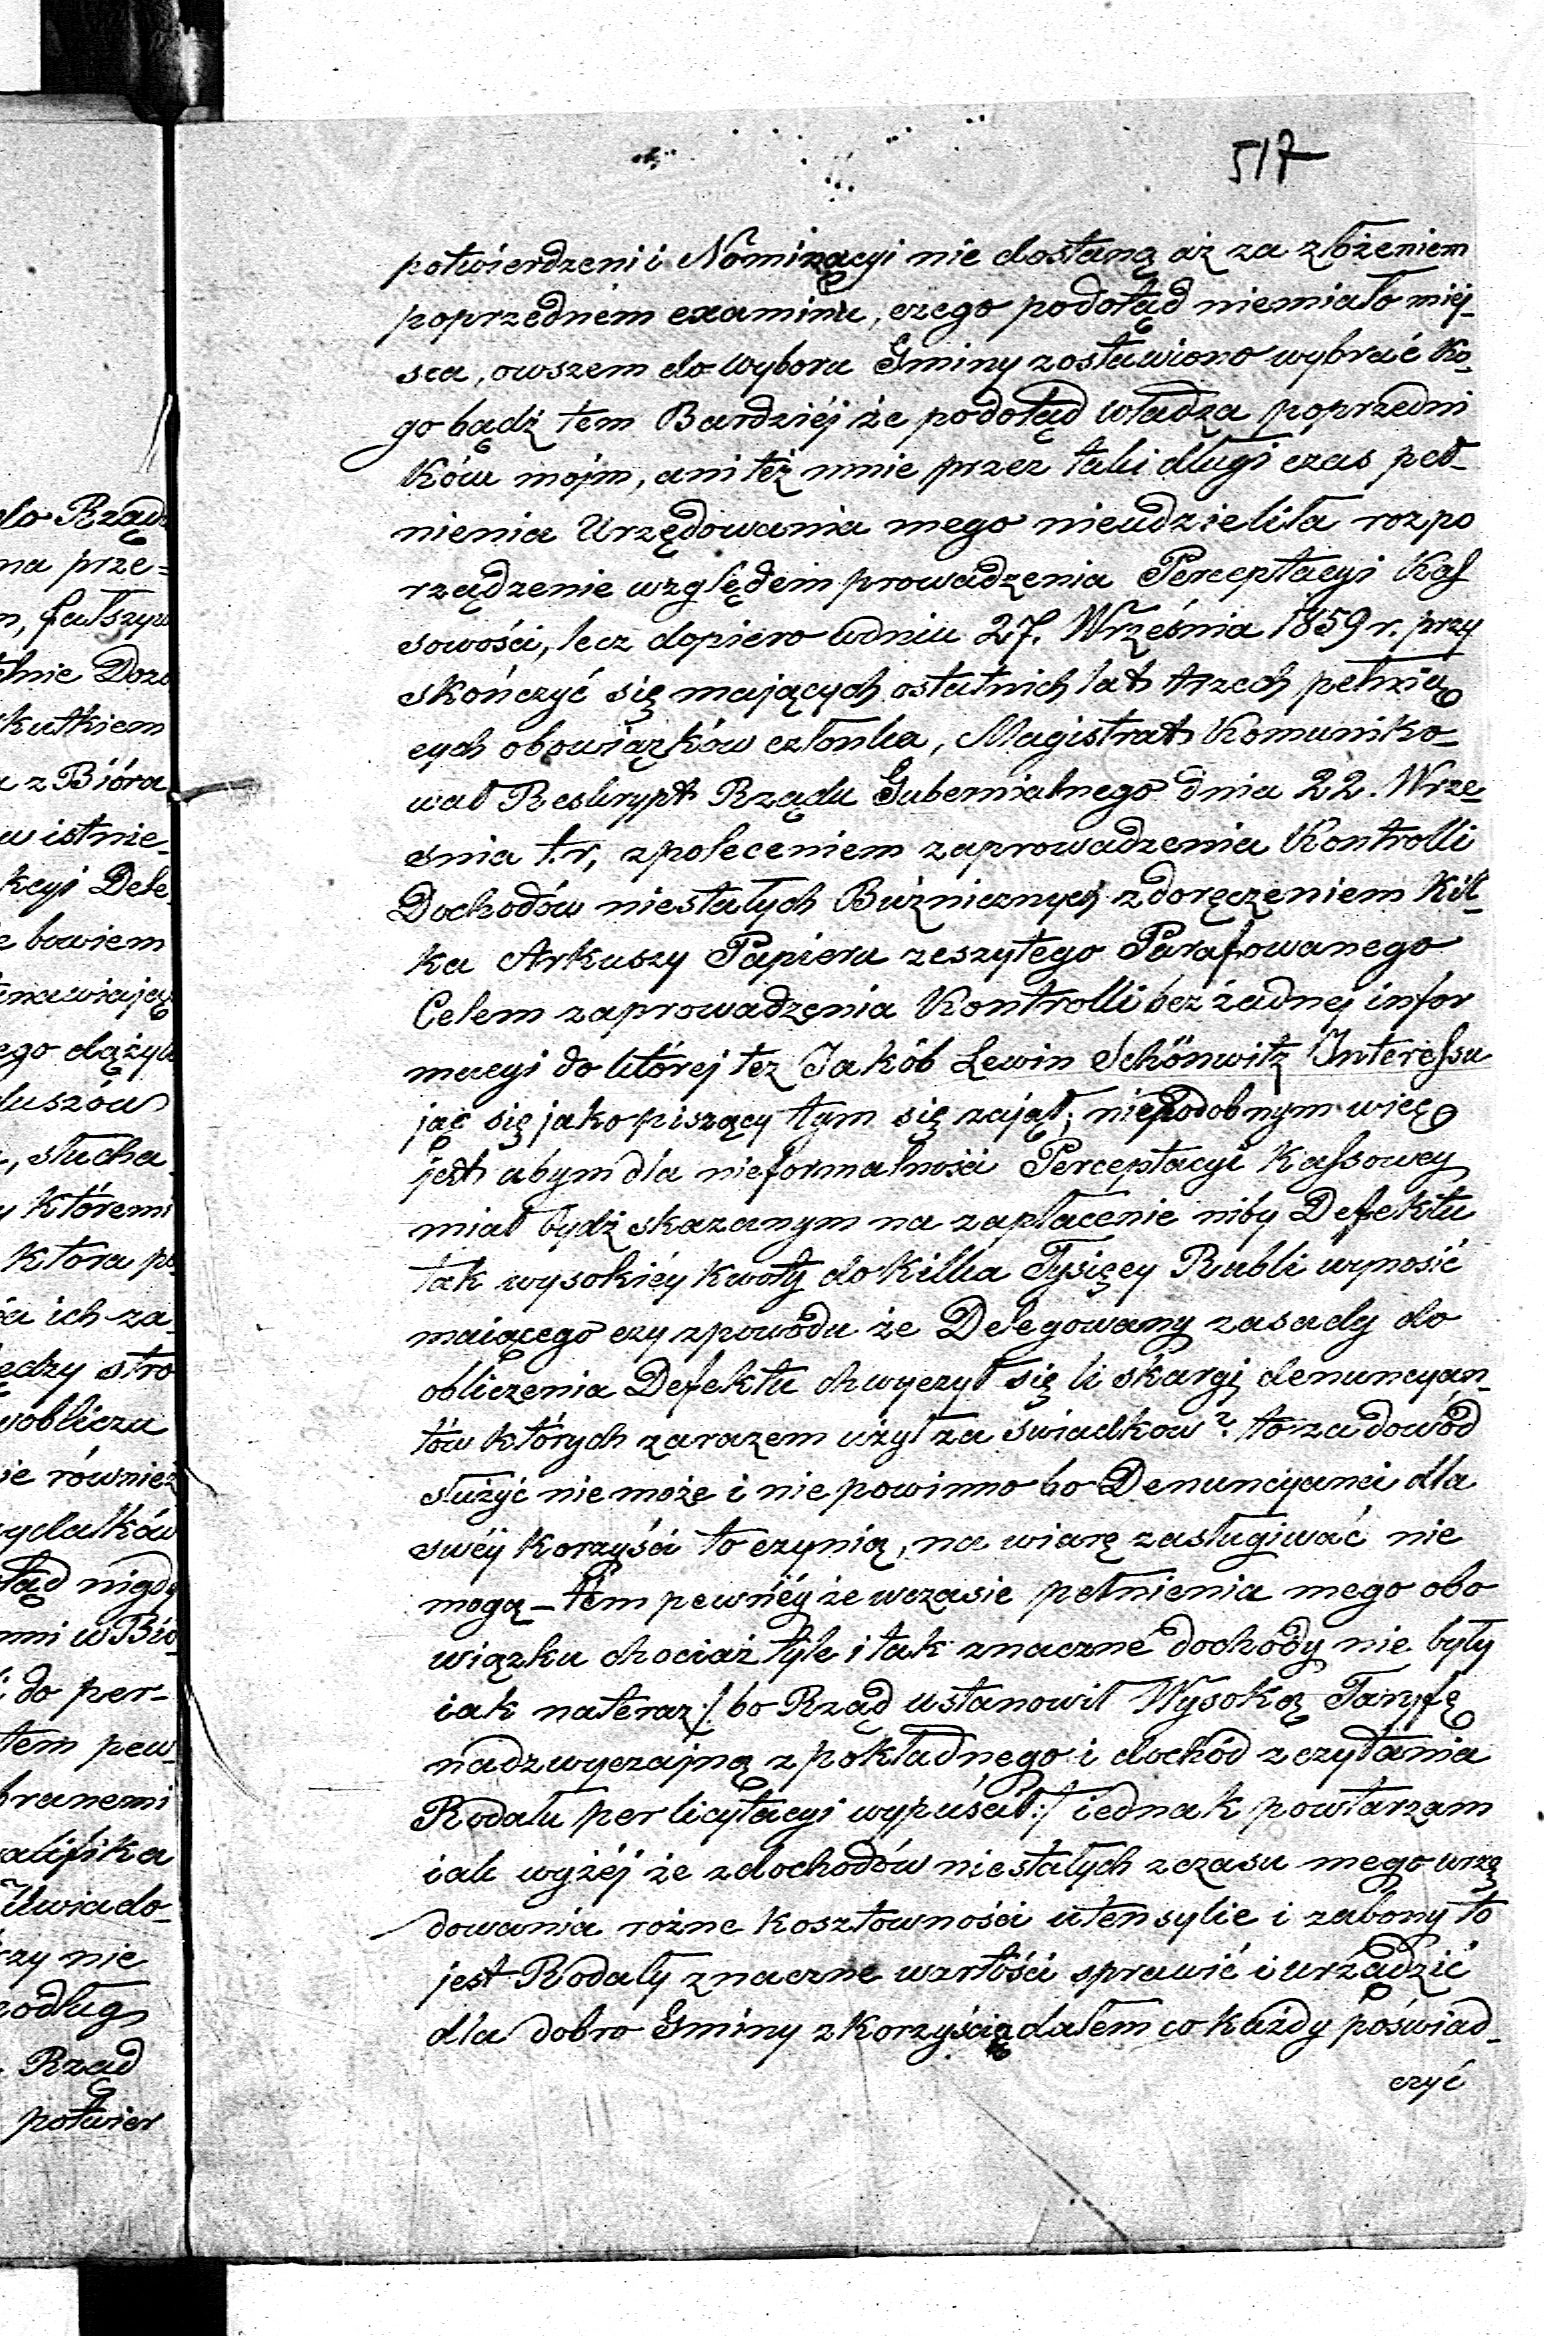 517
potwierdzeni i Nominacyi nie dostaną aż za złożeniem
poprzedniem examinu, czego podotąd niemiało miéj-
sca, owszem do wyboru Gminy zostawiono wybrać ko-
go bądź tem Bardziéj że podotąd władza poprzedni
ków mojm, ani też mnie przez taki długi czas peł-
nienia Urzędowania mego nieudzieliła rozpo
rządzenie względem prowadzenia Perceptacyi Kas
sowości, lecz dopiero wdniu 27. Września 1859 r. przy
skończyć się mających ostatnich lat trzech pełnią
cych obowiązków członka, Magistrat Komuniko-
wał Reskrypt Rządu Gubernialnego dnia 22. Wrze-
snia t.r, zpoleceniem zaprowadzenia Kontrolli
Dochodów niestałych Bużnicznych zdoręczeniem Kil-
ka Arkuszy Papieru zeszytego Parafowanego
Celem zaprowadzenia Kontrolli bez żadnej infor
macyi do któréj też Jakób Lewin Schönwitz Interessu
jąc się jako piszący tym się zajął; niepodobnym więc
jest abym dla nieformalności Perceptacyi Kassowey
miał bydź skazanym na zapłacenie niby Defektu
tak wysokiéy kwoty do kilka Tysięcy Rubli wynosić
maiącego czy zpowodu że Delegowany zasady do
obliczenia Defektu chwyczył się li skargi denuncyan-
tów których zarazem użył za świadkow? to za dowód
służyć niemoże i nie powinno bo Denuncyanci dla
swéy korzyści to czynią, na wiarę zasługiwać nie
mogą – tém pewnéy że wczasie pełnienia mego obo
wiązku chociaż tyle i tak znaczne dochody nie były
iak nateraz /: bo Rząd ustanowił Wysoką Taryfę
nadzwyczajną z pokładnego i dochód z czytania
Rodału per licytacyi wypuścił :/ iednak powtarzam
iak wyżéj że zdochodów niestałych zczasu mego urzę
dowania różne kosztowności utensylie i zabony to
jest Rodały znaczne wartości sprawić i urządzić
dla dobro Gminy z korzyścią dałem co każdy poświad-
czyć